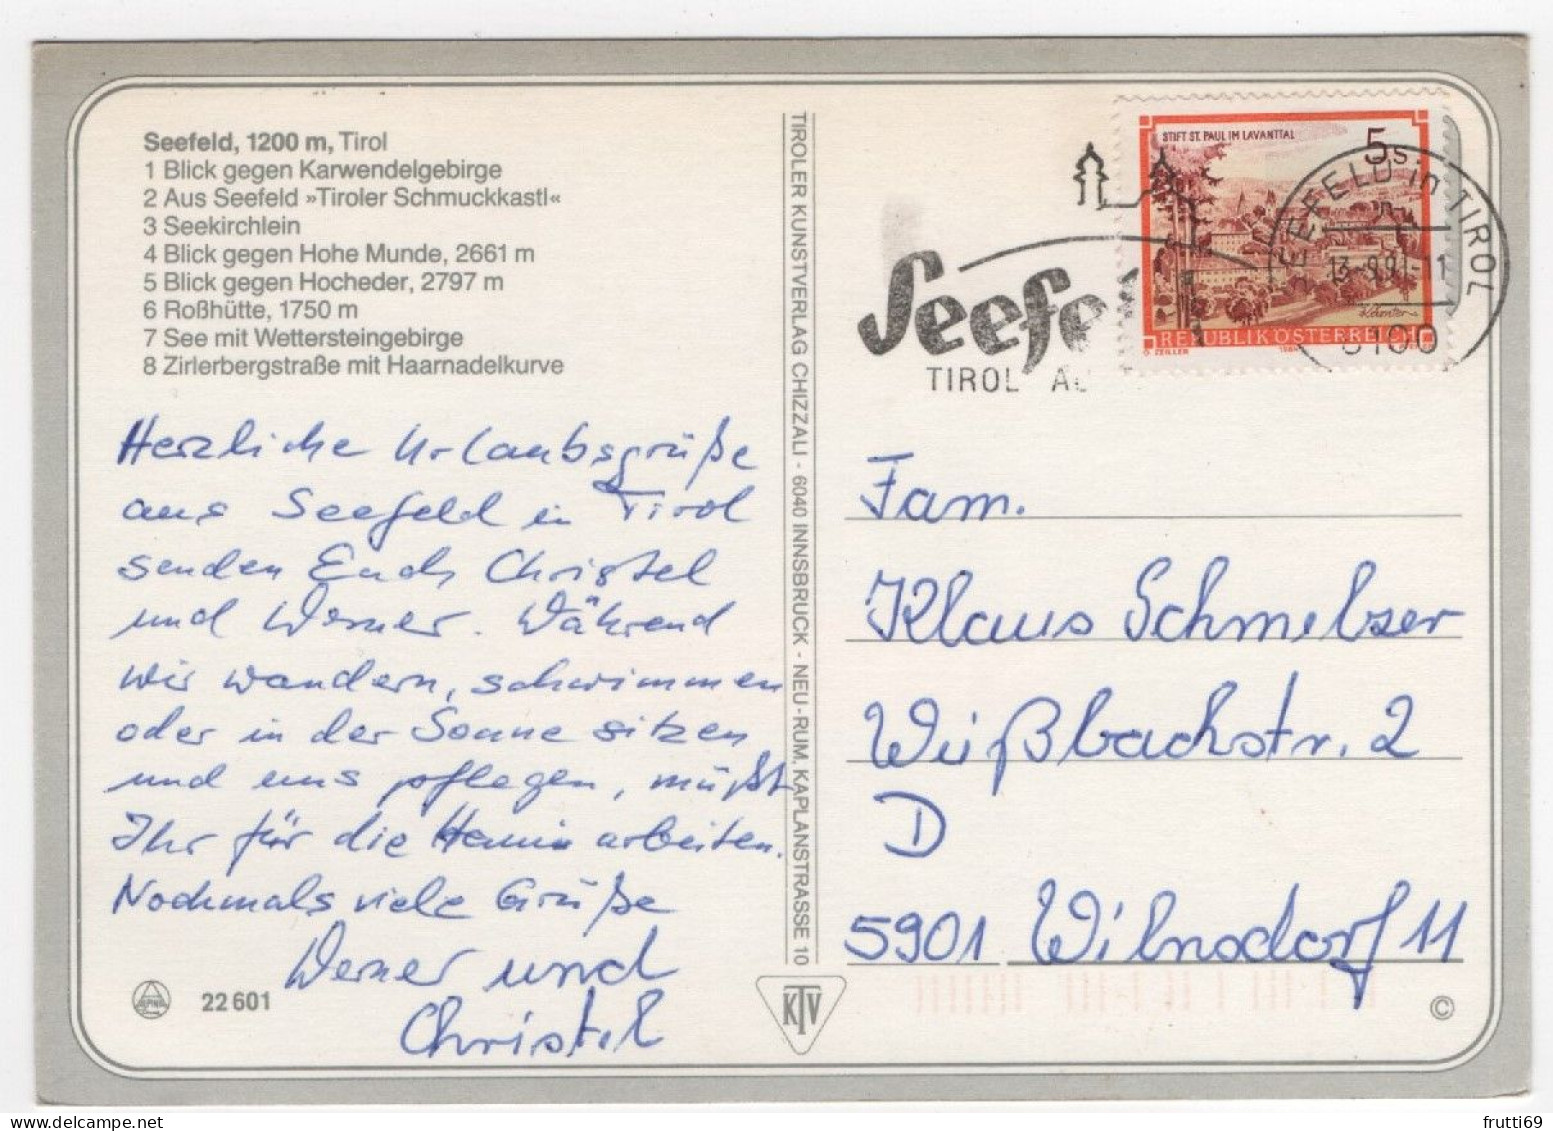 Seefeld, 1200 m, Tirol
1 Blick gegen Karwendelgebirge
2 Aus Seefeld »Tiroler Schmuckkastl«
3 Seekirchlein
4 Blick gegen Hohe Munde, 2661 m
5 Blick gegen Hocheder, 2797 m
6 Roßhütte, 1750 m
7 See mit Wettersteingebirge
8 Zirlerbergstraße mit Haarnadelkurve
Herzliche Urlaubsgrüße
aus Seefeld in Tirol
senden Euch Christel
und Werner. Während
wir wandern, schwimmen
oder in der Sonne sitzen
und uns pflegen, müßt
Ihr für die arbeiten.
Nochmals viele Grüße
Werner und
Christel
22 601
TIROLER KUNSTVERLAG CHIZZALI - 6040 INNSBRUCK - NEU-RUM, KAPLANSTRASSE 10
KTV
STIFT ST. PAUL IM LAVANTTAL
5 S
Kärnten
REPUBLIK ÖSTERREICH
O. ZEILLER
SEEFELD in TIROL
13.-9.91-11
6100
Seefe
TIROL AU
Fam.
Klaus Schmelzer
Wißbachstr. 2
D
5901 Wilnsdorf 11
©
frutti69